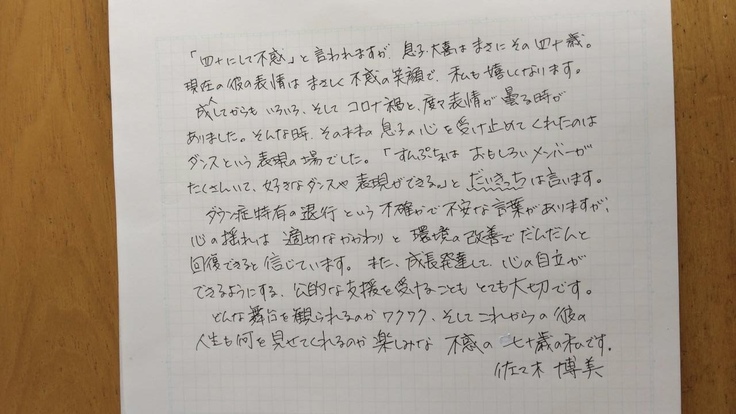 「四十にして不惑」と言われますが、息子大喜はまさにその四十歳。
現在の彼の表情はまさしく不惑の笑顔で、私も嬉しくなります。
成人してからもいろいろ、そしてコロナ禍と、度々表情が曇る時が
ありました。そんな時、そのままの息子の心を受け止めてくれたのは
ダンスという表現の場でした。「すんぷちょは おもしろいメンバーが
たくさんいて、好きなダンスや表現ができる。」とだいきっちは言います。
ダウン症特有の退行という不確かで不安な言葉がありますが、
心の揺れは 適切なかかわりと環境の改善でだんだんと
回復できると信じています。また、成長発達して、心の自立が
できるようにする、公的な支援を受けることもとても大切です。
どんな舞台を観られるのかワクワク、そしてこれからの彼の
人生も何を見せてくれるのか楽しみな 不惑の 七十歳の私です。
佐々木 博美